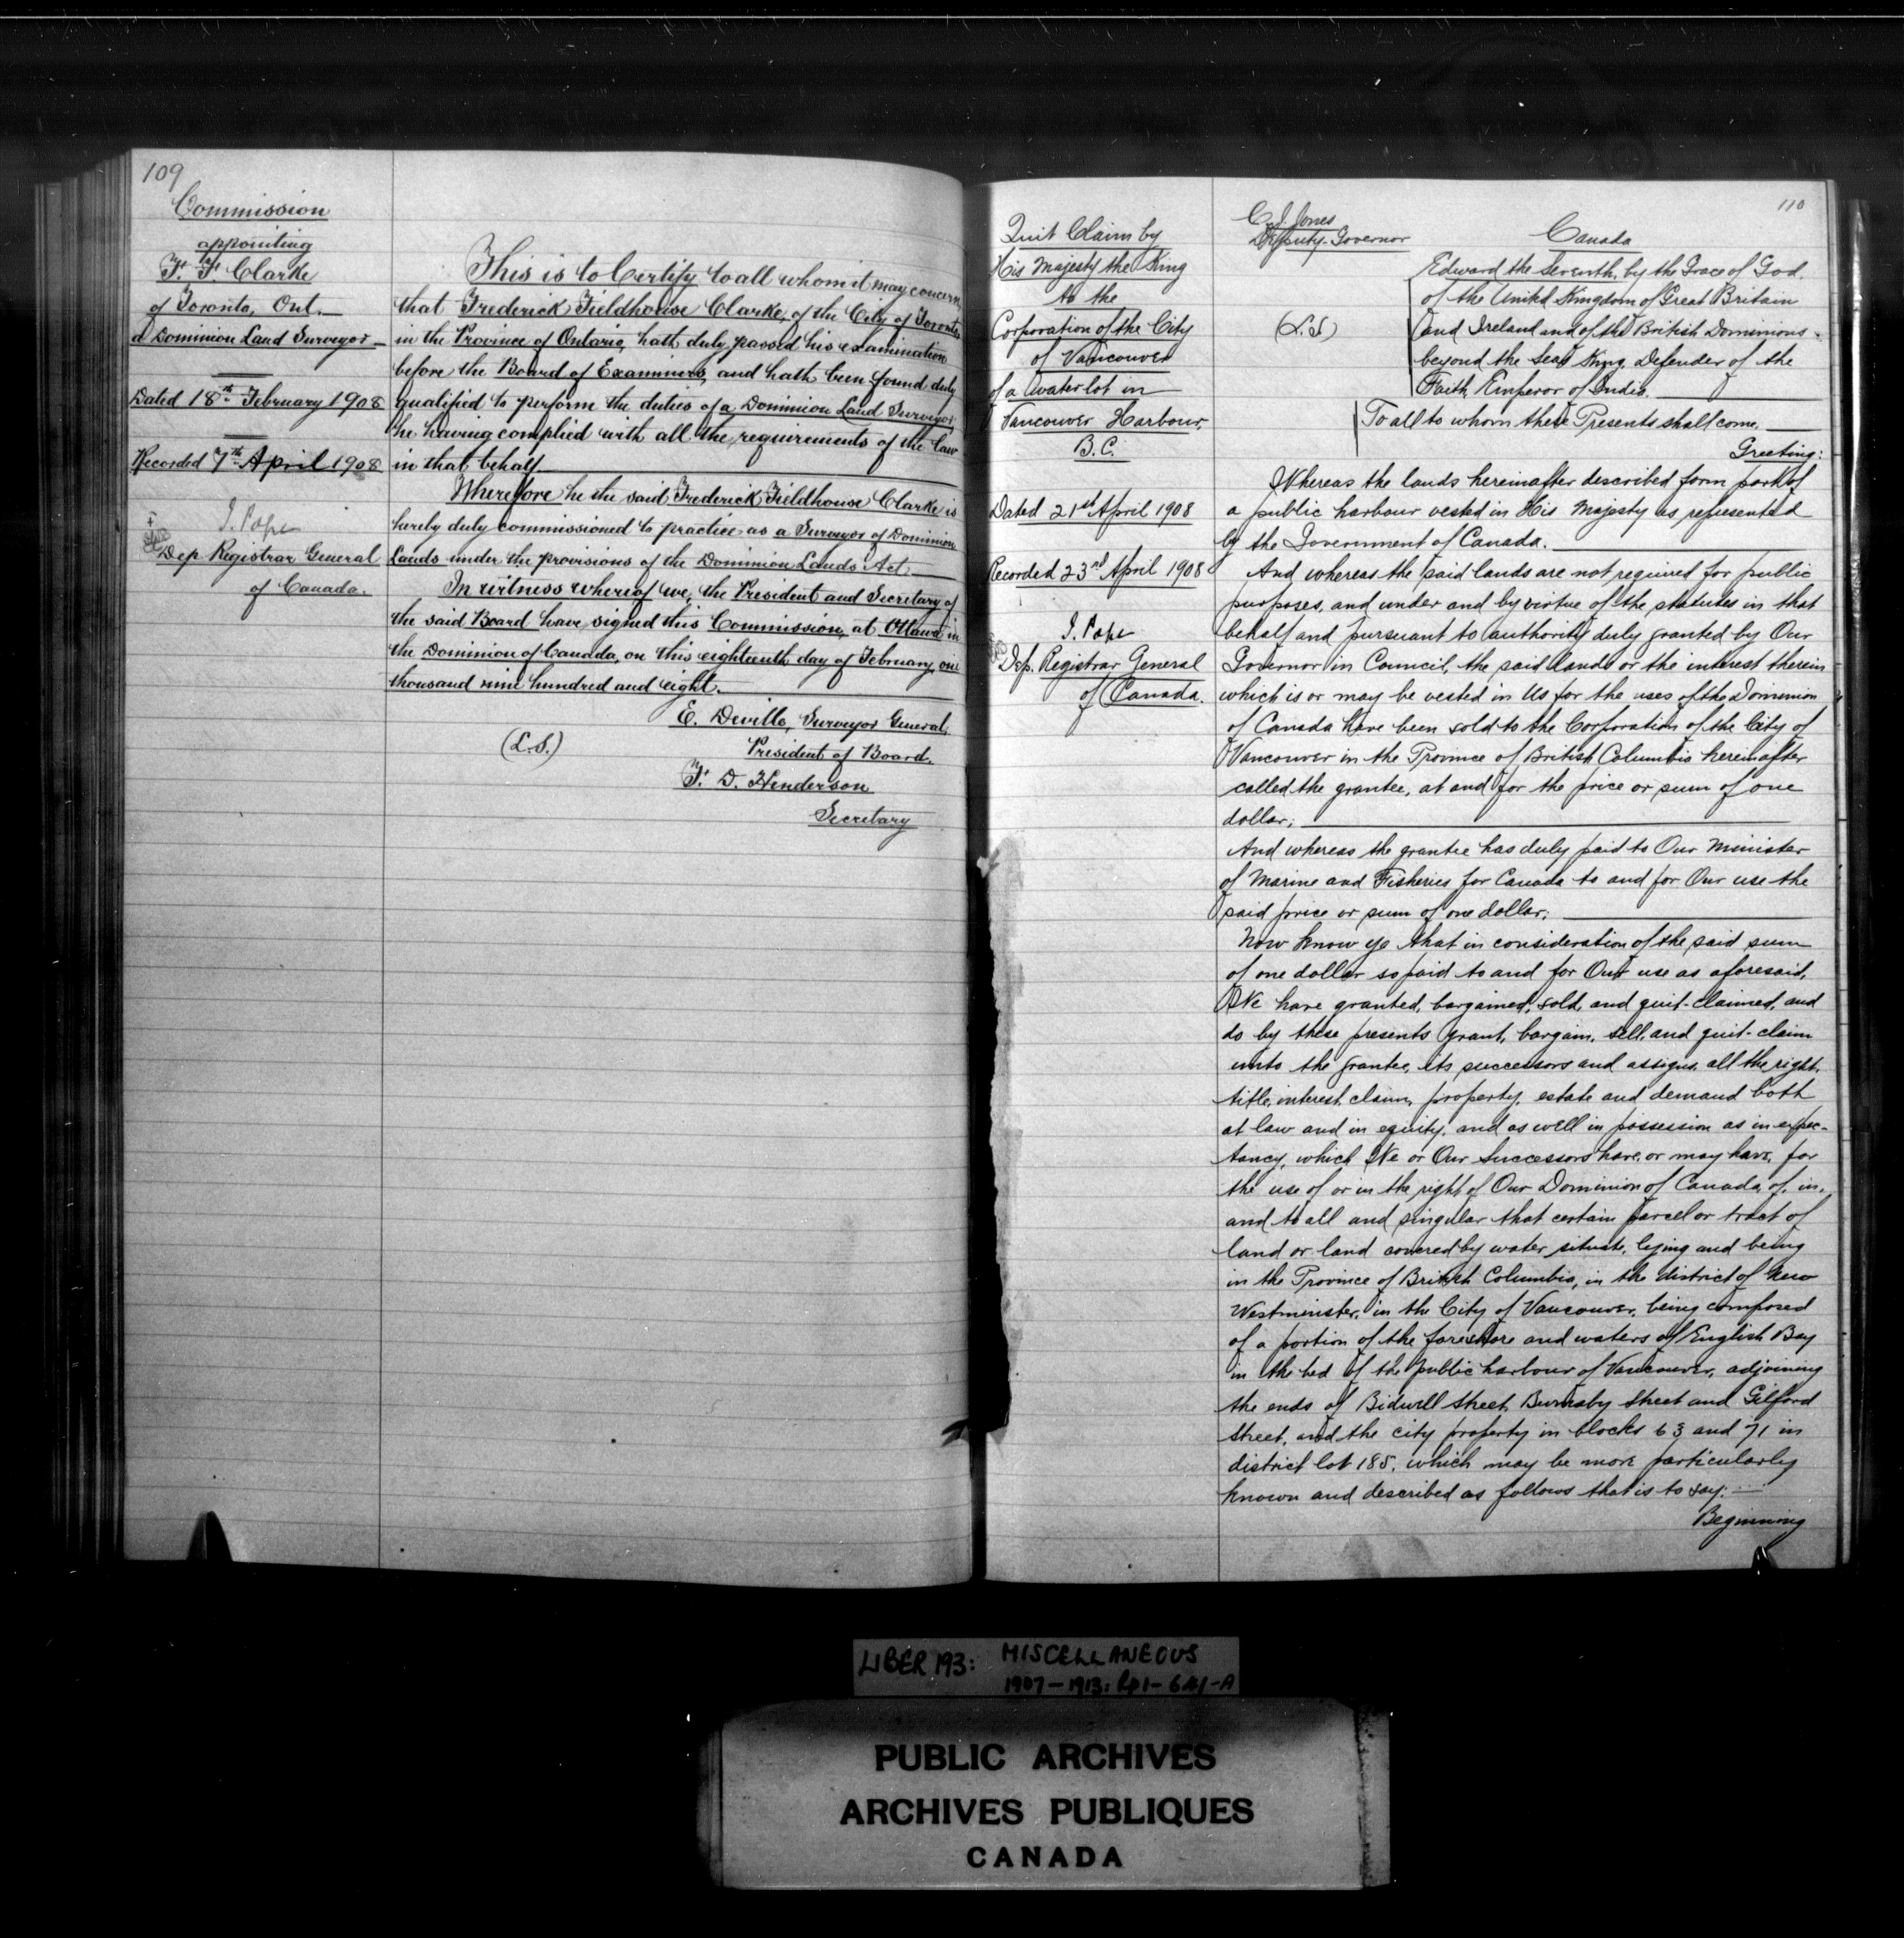 109
Commission
appointing
F. F. Clarke
of Toronto, Ont.
a Dominion Land Surveyor
Dated 18th February 1908
Recorded 7th April 1908
J. Pope
Dep. Registrar General
of Canada.
This is to Certify to all whom it may concern
that Frederick Fieldhouse Clarke, of the City of Toronto
in the Province of Ontario, hath duly passed his examination
before the Board of Examiners, and hath been found duly
qualified to perform the duties of a Dominion Land Surveyor,
he having complied with all the requirements of the law
in that behalf
Wherefore he the said Frederick Fieldhouse Clarke is
hereby duly commissioned to practice as a Surveyor of Dominion
Lands under the provisions of the Dominion Lands Act
In witness whereof we, the President and Secretary of
the said Board have signed this Commission, at Ottawa in
the Dominion of Canada, on this eighteenth day of February, one
thousand nine hundred and eight.
E. Deville, Surveyor General,
(L.S.)
President of Board.
F. D. Henderson
Secretary
110
Quit Claim by
His Majesty the King
to the
Corporation of the City
of Vancouver
of a water lot in
Vancouver Harbour,
B.C.
Dated 21st April 1908
Recorded 23rd April 1908
J. Pope
Dep. Registrar General
of Canada.
C. J. Jones
Deputy-Governor
Canada
(L.S)
Edward the Seventh, by the Grace of God,
of the United Kingdom of Great Britain
and Ireland and of the British Dominions
beyond the Seas King, Defender of the
Faith, Emperor of India.
To all to whom these Presents shall come,
Greeting:
Whereas the lands hereinafter described form part of
a public harbour vested in His Majesty as represented
by the Government of Canada.
And whereas the said lands are not required for public
purposes, and under and by virtue of the statutes in that
behalf and pursuant to authority duly granted by Our
Governor in Council, the said lands or the interest therein
which is or may be vested in Us for the uses of the Dominion
of Canada have been sold to the Corporation of the City of
Vancouver in the Province of British Columbia hereinafter
called the grantee, at and for the price or sum of one
dollar;
And whereas the grantee has duly paid to Our Minister
of Marine and Fisheries for Canada to and for Our use the
said price or sum of one dollar;
Now know ye that in consideration of the said sum
of one dollar so paid to and for Our use as aforesaid,
We have granted, bargained, sold, and quit-claimed, and
do by these presents grant, bargain, sell, and quit-claim
unto the grantee, its successors and assigns, all the right,
title, interest, claim, property, estate and demand both
at law and in equity, and as well in possession as in expec-
tancy, which We or Our Successors have, or may have, for
the use of or in the right of Our Dominion of Canada, of, in,
and to all and singular that certain parcel or tract of
land or land covered by water situate, lying and being
in the Province of British Columbia, in the district of New
Westminster, in the City of Vancouver, being composed
of a portion of the foreshore and waters of English Bay
in the bed of the public harbour of Vancouver, adjoining
the ends of Bidwell Street, Burnaby Street and Gilford
Street, and the city property in blocks 63 and 71 in
district lot 185, which may be more particularly
known and described as follows that is to say:—
Beginning
LIBER 193: MISCELLANEOUS
1907-1913: pp1-641-A
PUBLIC ARCHIVES
ARCHIVES PUBLIQUES
CANADA